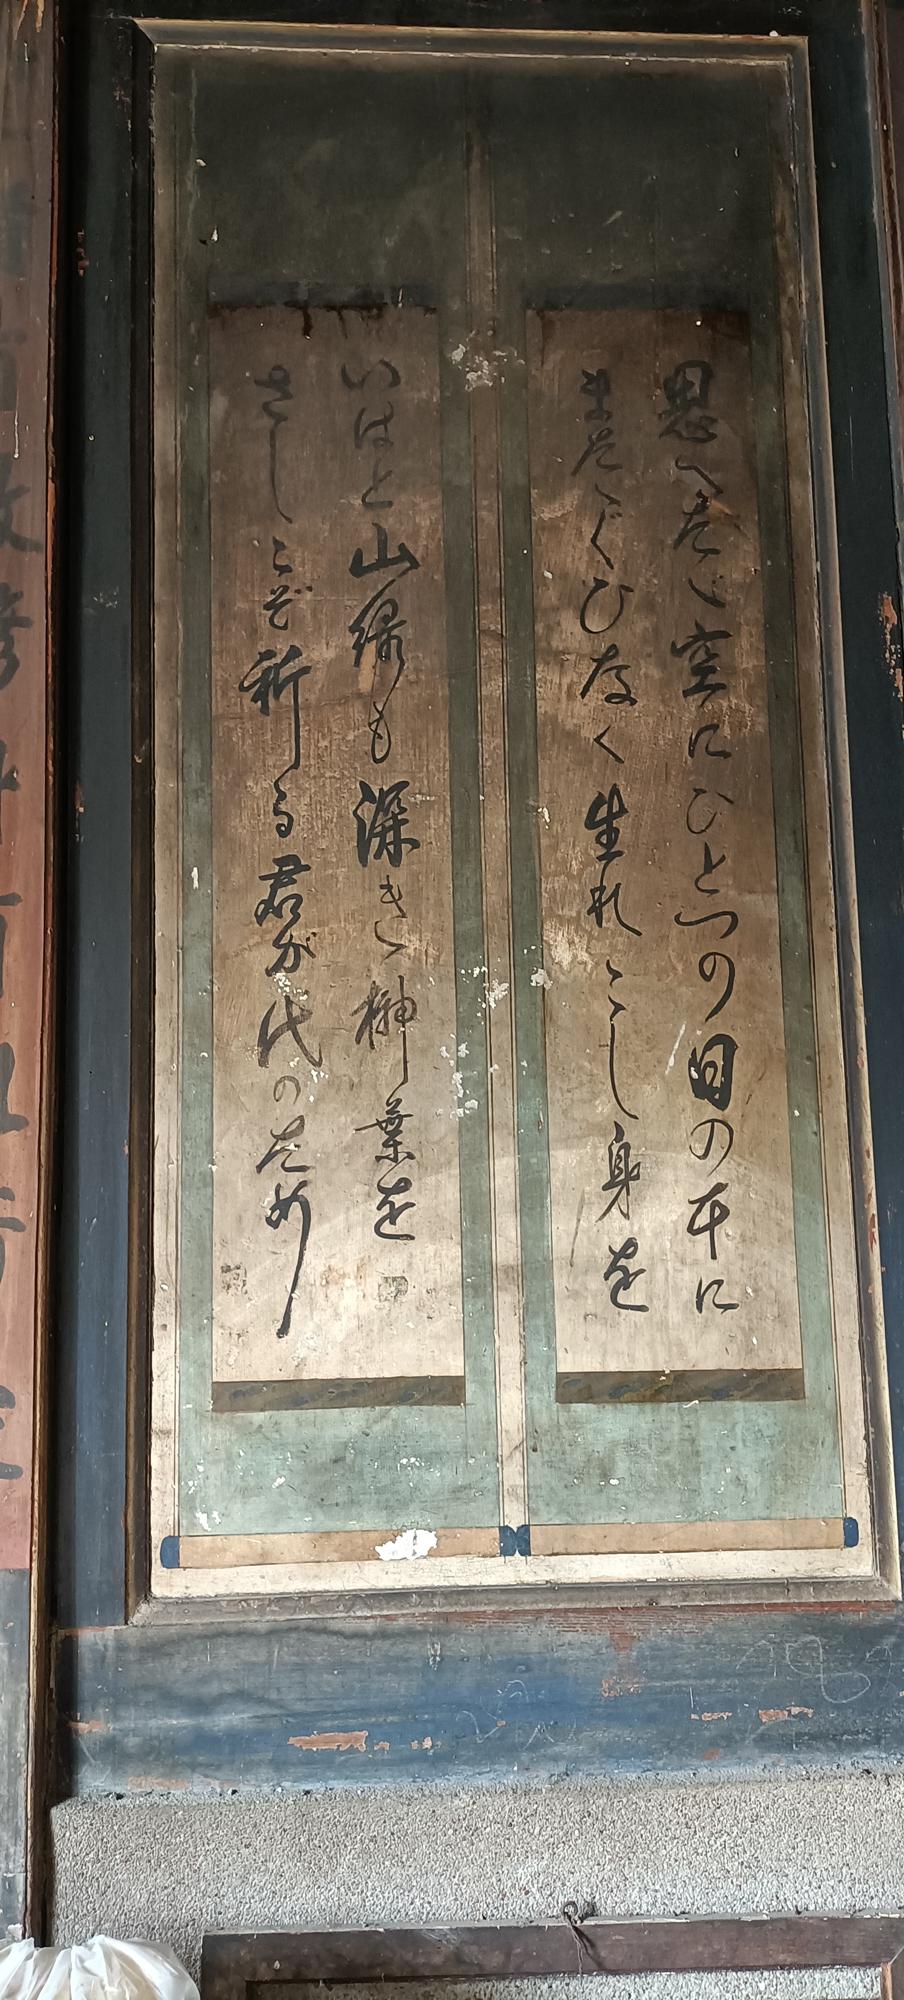 思へたゞ空にひとつの日の本に
またゝぐひなく生れこし身を
いはと山緑も深き榊葉を
さしてぞ祈る君が代のため